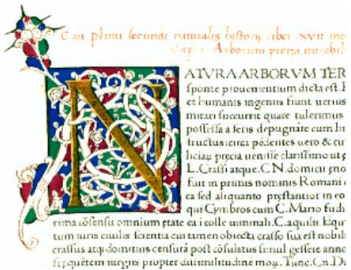 Caii plinii secundi naturalis historie liber XVII inc
Caput Arborum precia mirabil
NATURA ARBORVM TER
sponte prouenientium dicta est. R
et humanis ingeniis fiunt uerius
mirari succurrit quare tulerimus
possessa a feris depugnate cum
tructus circa pōdentes uero & cu
licias precia uenisse clarissimo ut
L. Crassi atque. CN domicii
fuit in primis nominis Romani
ea sed aliquanto prestantior in co
qui Cymbros cum C. Mario fudi
rima cōsensu omnium etate ea i colle uiminali. C. aquilii Equi
tum iuris ciuilis scientia cui tamen obiecta crasso sua est nobil
crassus atq; domitius censurā post cōsulatus simul gessere anno
frequētem iurgiis propter dissimilitudinē moꝝ. Tunc. Cn. Do